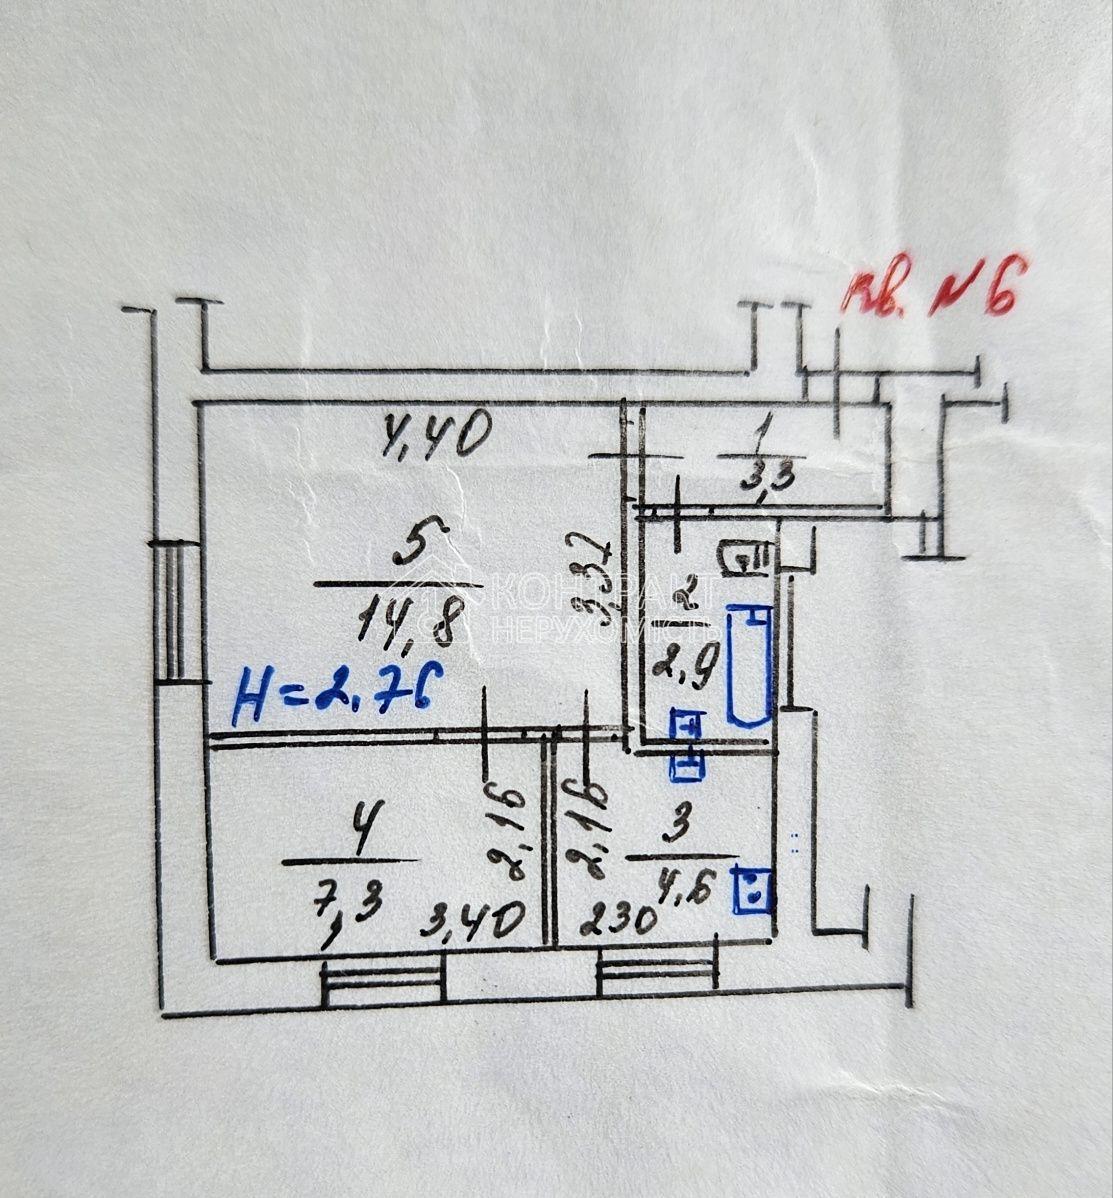 кв. №6
4,40
1
3,3
5
14,8
3,37
КОНТРАКТ
НЕРУХОМІСТЬ
2
2,9
H=2,76
4
7,3
2,16
3,40
2,16
3
4,6
230